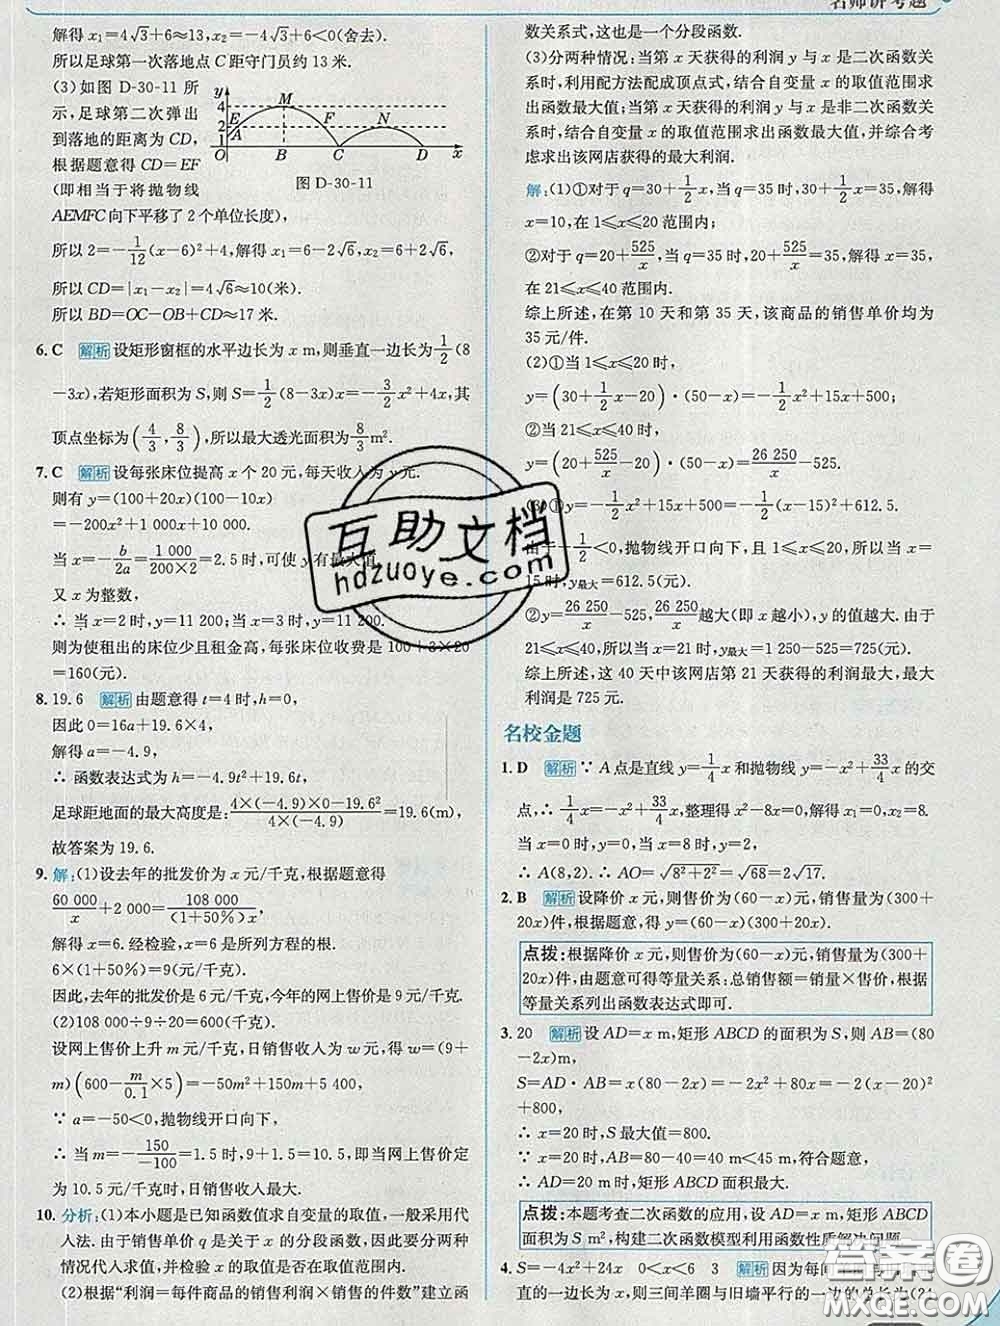 名师讲考题
解得 x₁=4√3+6≈13,x₂=-4√3+6<0(舍去).
所以足球第一次落地点 C 距守门员约 13 米.
(3)如图 D-30-11 所
示,足球第二次弹出
到落地的距离为 CD,
根据题意得 CD=EF
(即相当于将抛物线
AEMFC 向下平移了 2 个单位长度),
y
4
2
1
M
E
A
F
N
O
B
C
D
x
图 D-30-11
所以 2=-1/12(x-6)²+4,解得 x₁=6-2√6,x₂=6+2√6,
所以 CD=|x₁-x₂|=4√6≈10(米).
所以 BD=OC-OB+CD≈17 米.
6. C 解析 设矩形窗框的水平边长为 x m,则垂直一边长为 1/2(8
-3x),若矩形面积为 S,则 S=1/2(8-3x)x=-3/2x²+4x,其
顶点坐标为(4/3,8/3),所以最大透光面积为 8/3 m².
7. C 解析 设每张床位提高 x 个 20 元,每天收入为 y 元.
则有 y=(100+20x)(100-10x)
=-200x²+1 000x+10 000.
当 x=-b/2a=1 000/(200×2)=2.5 时,可使 y 有最大值.
又 x 为整数,
∴ 当 x=2 时,y=11 200;当 x=3 时,y=11 200.
则为使租出的床位少且租金高,每张床位收费是 100+3×20
=160(元).
8. 19.6 解析 由题意得 t=4 时,h=0,
因此 0=16a+19.6×4,
解得 a=-4.9,
∴ 函数表达式为 h=-4.9t²+19.6t,
足球距地面的最大高度是:(4×(-4.9)×0-19.6²)/(4×(-4.9))=19.6(m),
故答案为 19.6.
9. 解:(1)设去年的批发价为 x 元/千克,根据题意得
60 000/x+2 000=108 000/((1+50%)x),
解得 x=6.经检验,x=6 是所列方程的根.
6×(1+50%)=9(元/千克).
因此,去年的批发价是 6 元/千克,今年的网上售价是 9 元/千克.
(2)108 000÷9÷20=600(千克).
设网上售价上升 m 元/千克,日销售收入为 w 元,得 w=(9+
m)(600-m/0.1×5)=-50m²+150m+5 400,
∵ a=-50<0,抛物线开口向下,
∴ 当 m=-150/-100=1.5 时,9+1.5=10.5,即当网上售价定
为 10.5 元/千克时,日销售收入最大.
10. 分析:(1)本小题是已知函数值求自变量的取值,一般采用代
入法.由于销售单价 q 是关于 x 的分段函数,因此要分两种
情况代入求值,并检验 x 的取值是否在取值范围内.
(2)根据“利润=每件商品的销售利润×销售的件数”建立函
数关系式,这也是一个分段函数.
(3)分两种情况:当第 x 天获得的利润 y 与 x 是二次函数关
系时,利用配方法配成顶点式,结合自变量 x 的取值范围求
出函数最大值;当第 x 天获得的利润 y 与 x 是非二次函数关
系时,结合自变量 x 的取值范围求出函数最大值,并综合考
虑求出该网店获得的最大利润.
解:(1)①对于 q=30+1/2x,当 q=35 时,30+1/2x=35,解得
x=10,在 1≤x≤20 范围内;
②对于 q=20+525/x,当 q=35 时,20+525/x=35,解得 x=35,
在 21≤x≤40 范围内.
综上所述,在第 10 天和第 35 天,该商品的销售单价均为
35 元/件.
(2)①当 1≤x≤20 时,
y=(30+1/2x-20)·(50-x)=-1/2x²+15x+500;
②当 21≤x≤40 时,
y=(20+525/x-20)·(50-x)=26 250/x-525.
(3)①y=-1/2x²+15x+500=-1/2(x-15)²+612.5.
由于-1/2<0,抛物线开口向下,且 1≤x≤20,所以当 x=
15 时,y最大=612.5(元).
②y=26 250/x-525,26 250/x越大(即 x 越小),y 的值越大.由于
21≤x≤40,所以当 x=21 时,y最大=1 250-525=725(元).
综上所述,这 40 天中该网店第 21 天获得的利润最大,最大
利润是 725 元.
名校金题
1. D 解析 ∵ A 点是直线 y=1/4x 和抛物线 y=-x²+33/4x 的交
点,∴ 1/4x=-x²+33/4x,整理得 x²-8x=0,解得 x₁=0,x₂=8.
当 x=0 时,y=0;当 x=8 时,y=2,
∴ A(8,2).∴ AO=√(8²+2²)=√68=2√17.
2. B 解析 设降价 x 元,则售价为(60-x)元,销售量为(300+
20x)件,根据题意,得 y=(60-x)(300+20x).
点拨:根据降价 x 元,则售价为(60-x)元,销售量为(300+
20x)件,由题意可得等量关系:总销售额=销量×售价,根据
等量关系列出函数表达式即可.
3. 20 解析 设 AD=x m,矩形 ABCD 的面积为 S,则 AB=(80
-2x)m,
S=AD·AB=x(80-2x)=-2x²+80x=-2(x-20)²
+800,
∴ x=20 时,S最大值=800.
∵ x=20 时,80-2x=80-40=40 m<45 m,符合题意,
∴ AD=20 m 时,矩形 ABCD 面积最大.
点拨:本题考查二次函数的应用,设 AD=x m,矩形 ABCD
面积为 S m²,构建二次函数模型利用函数性质解决问题.
4. S=-4x²+24x 0<x<6 3 解析 因为每间羊圈与旧墙垂
直的一边长为 x,则三间羊圈与旧墙平行的一边的总长为(24
互助文档
hdzuoye.com
答案圈
MXQE.COM